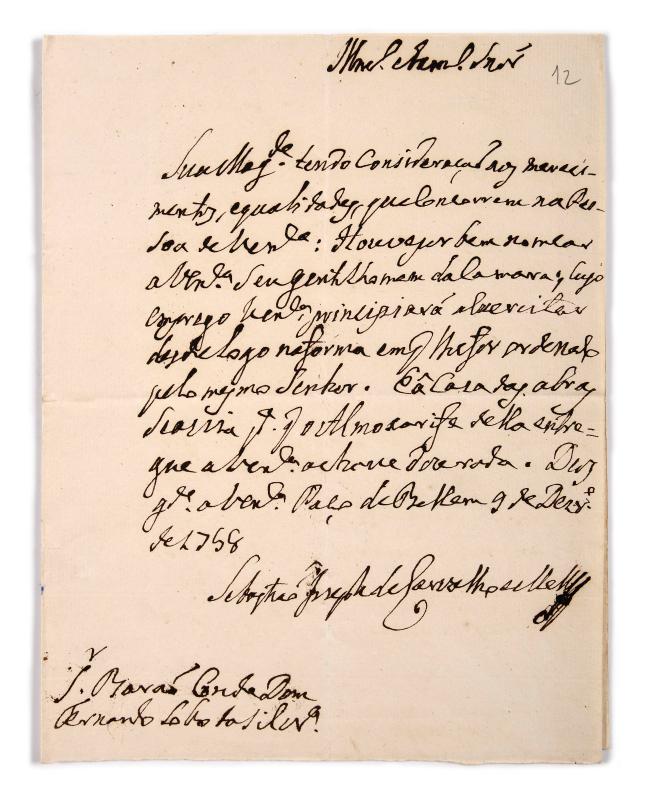 Illmo. e Exmo. Snór
12
Sua Magde. tendo Consideração aos mereci-
mentos, e qualidades, que Concorrem na Pes-
soa de V. Exa.: Houve por bem nomear
a V. Exa. Seu gentilhomem da Camara; Cujo
emprego V. Exa. principiará a Exercitar
desde Logo na forma em q lhe for ordenado
pelo mesmo Senhor. E á Casa das obras
Se avisa pa. q o Almoxarife della entre-
gue a V. Exa. a chave dourada. Deos
gde. a V. Exa. Paço de Bellem 9 de Dezro.
de 1758
Sebastião Joseph de Carvalho e Mello
Sr. Barão Conde Dom
Fernando Lobo da Silvra.